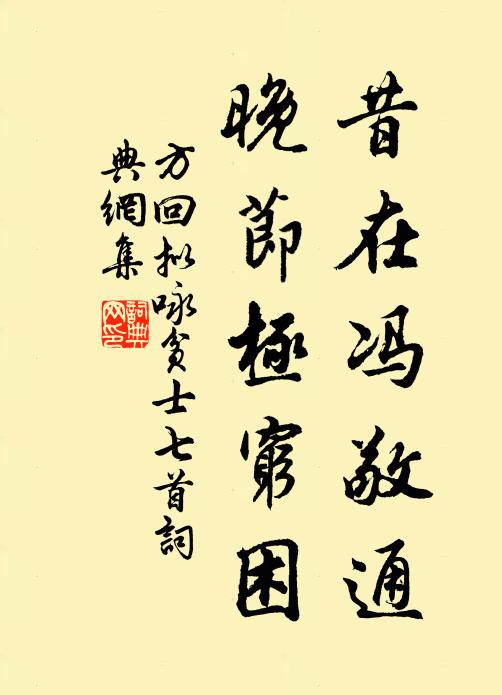 昔在冯敬通
晚節極窮困
方回拟咏贫士七首詞
典網集
詞典網印